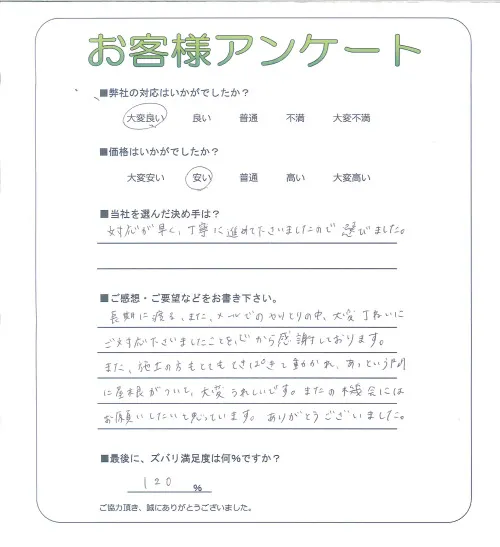 お客様アンケート
■弊社の対応はいかがでしたか？
大変良い 良い 普通 不満 大変不満
■価格はいかがでしたか？
大変安い 安い 普通 高い 大変高い
■当社を選んだ決め手は？
対応が早く、丁寧に進めて下さいましたので選びました。
■ご感想・ご要望などをお書き下さい。
長期に渡る、また、メールでのやりとりの中、大変丁ねいに
ご対応下さいましたことを、心から感謝しております。
また、施工の方もとてもてきぱきと動かれ、あっという間
に屋根がついて、大変うれしいです。またの機会には
お願いしたいと思っています。ありがとうございました。
■最後に、ズバリ満足度は何％ですか？
120 ％
ご協力頂き、誠にありがとうございました。